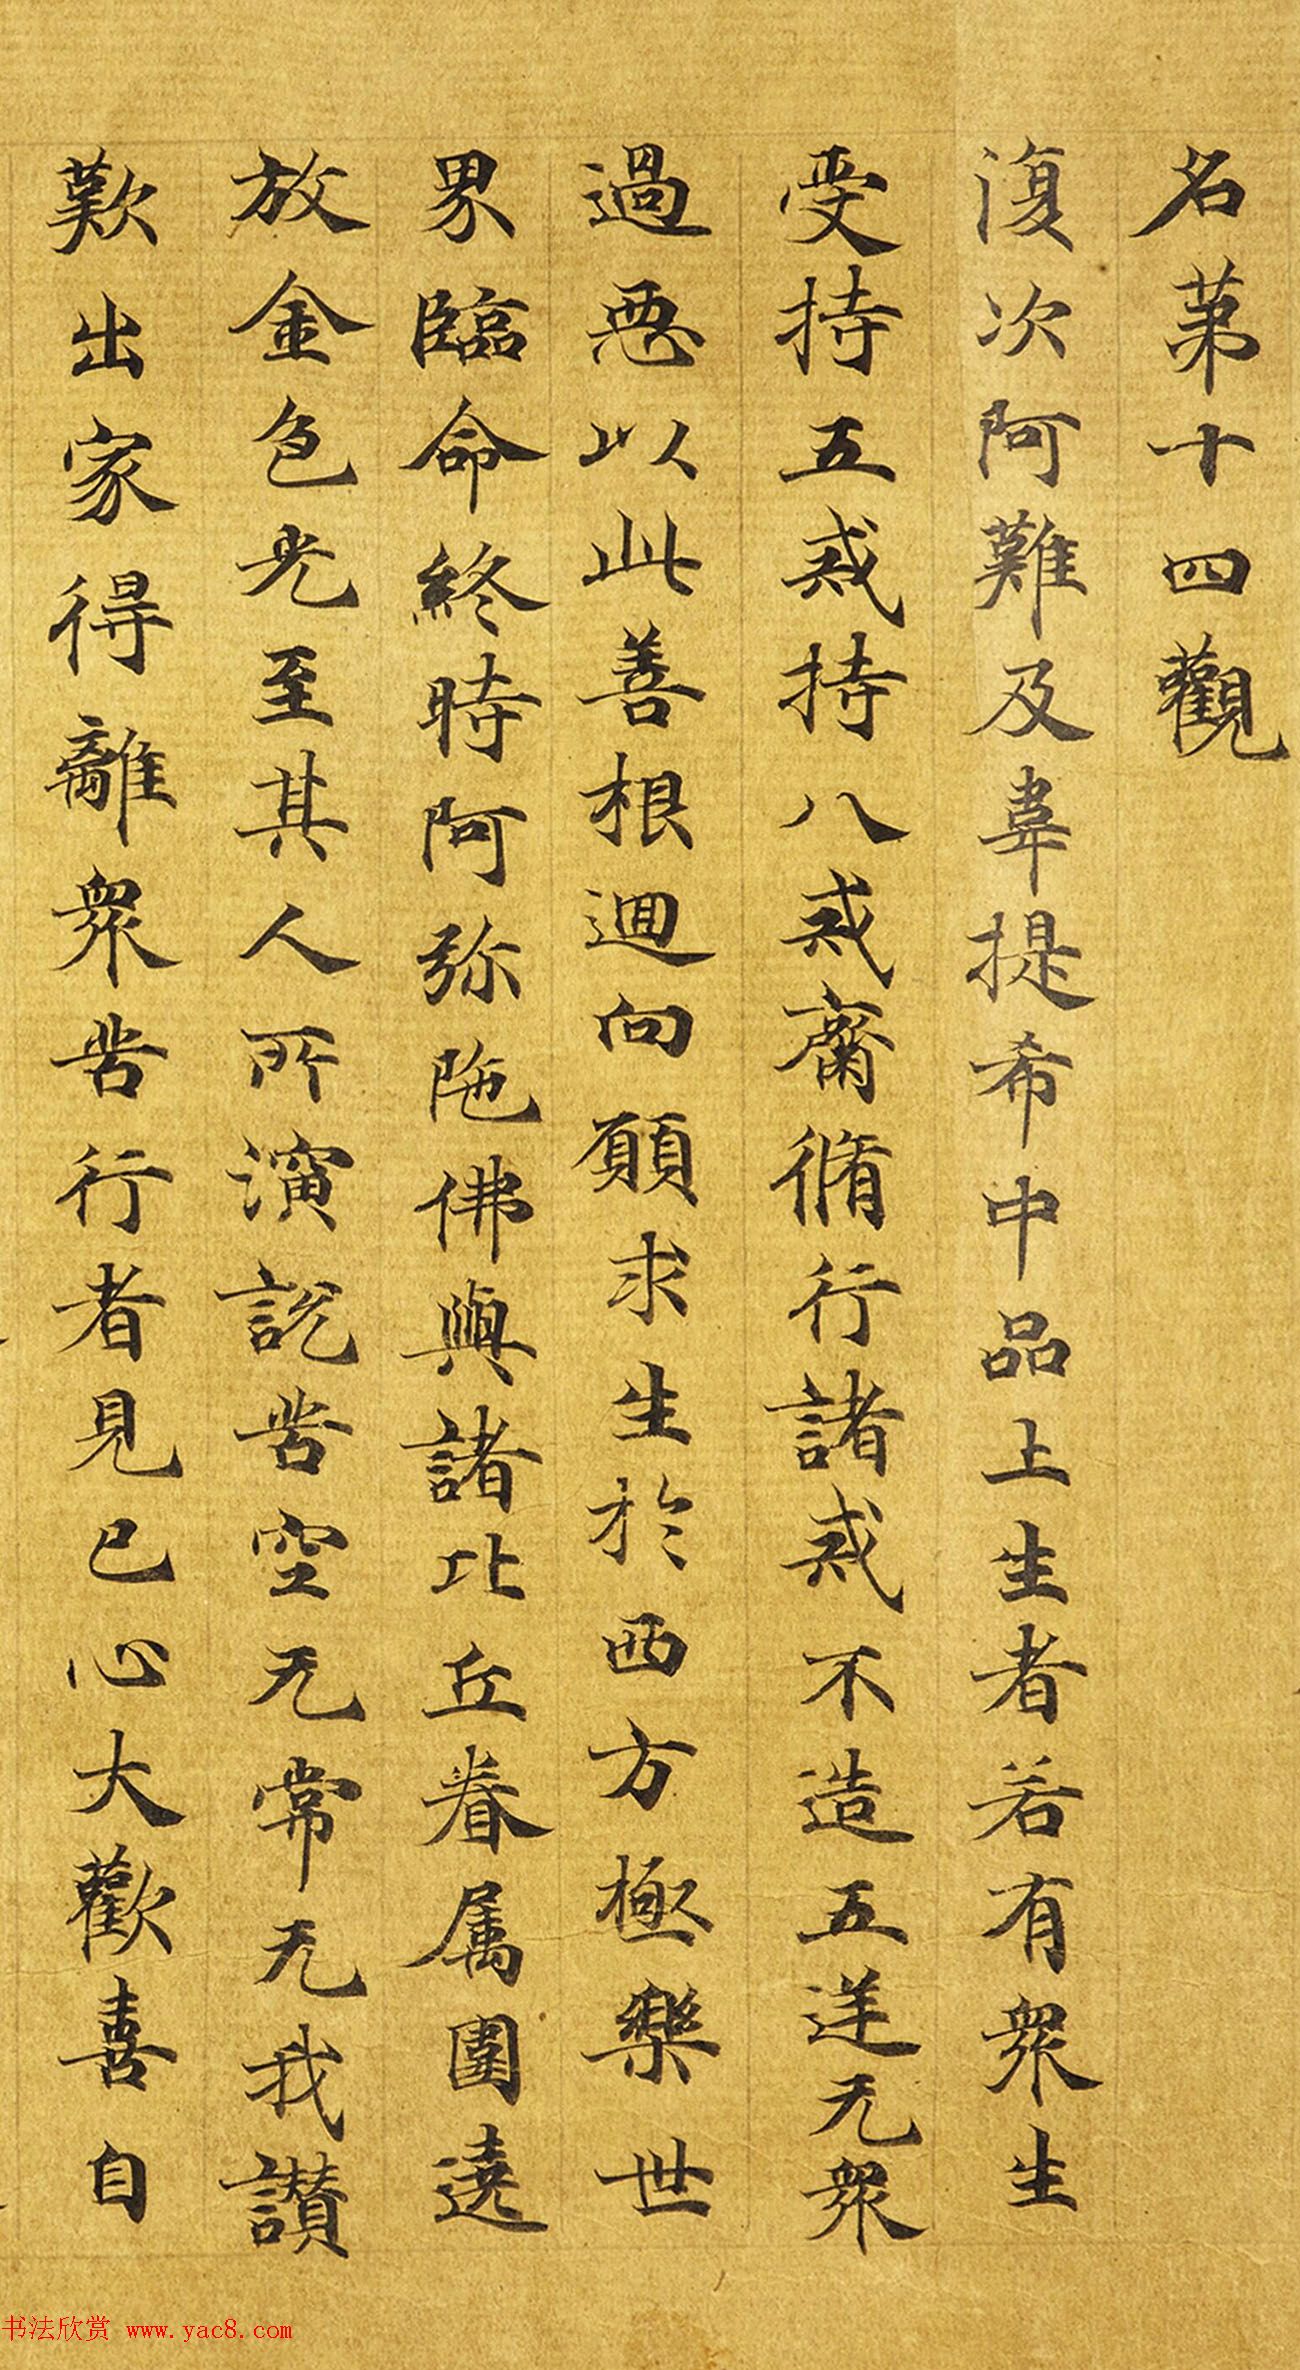 名第十四觀
復次阿難及韋提希中品上生者若有衆生
受持五戒持八戒齋脩行諸戒不造五逆无衆
過惡以此善根迴向願求生於西方極樂世
界臨命終時阿弥陁佛與諸比丘眷属圍遶
放金色光至其人所演說苦空无常无我讃
歎出家得離衆苦行者見已心大歡喜自
书法欣赏 www.yac8.com